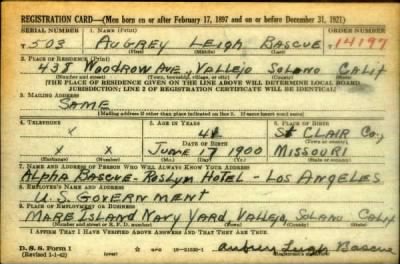 REGISTRATION CARD—(Men born on or after February 17, 1897 and on or before December 31, 1921)
SERIAL NUMBER 1. NAME (Print) ORDER NUMBER
T 503 AUBREY LEIGH BASCUE T 14197
(First) (Middle) (Last)
2. PLACE OF RESIDENCE (Print)
438 WOODROW AVE, VALLEJO SOLANO CALIF
(Number and street) (Town, township, village, or city) (County) (State)
[THE PLACE OF RESIDENCE GIVEN ON THE LINE ABOVE WILL DETERMINE LOCAL BOARD
JURISDICTION; LINE 2 OF REGISTRATION CERTIFICATE WILL BE IDENTICAL]
3. MAILING ADDRESS
SAME
[Mailing address if other than place indicated on line 2. If same insert word same]
4. TELEPHONE 5. AGE IN YEARS 6. PLACE OF BIRTH
X 41 ST CLAIR Co,
DATE OF BIRTH (Town or county)
X X JUNE 17 1900 MISSOURI
(Exchange) (Number) (Mo.) (Day) (Yr.) (State or country)
7. NAME AND ADDRESS OF PERSON WHO WILL ALWAYS KNOW YOUR ADDRESS
ALPHA BASCUE - ROSLYN HOTEL - LOS ANGELES
8. EMPLOYER'S NAME AND ADDRESS
U.S. GOVERNMENT
9. PLACE OF EMPLOYMENT OR BUSINESS
MARE ISLAND NAVY YARD, VALLEJO, SOLANO CALIF
(Number and street or R. F. D. number) (Town) (County) (State)
I AFFIRM THAT I HAVE VERIFIED ABOVE ANSWERS AND THAT THEY ARE TRUE.
D. S. S. Form 1
(Revised 1-1-42) (over) Aubrey Leigh Bascue